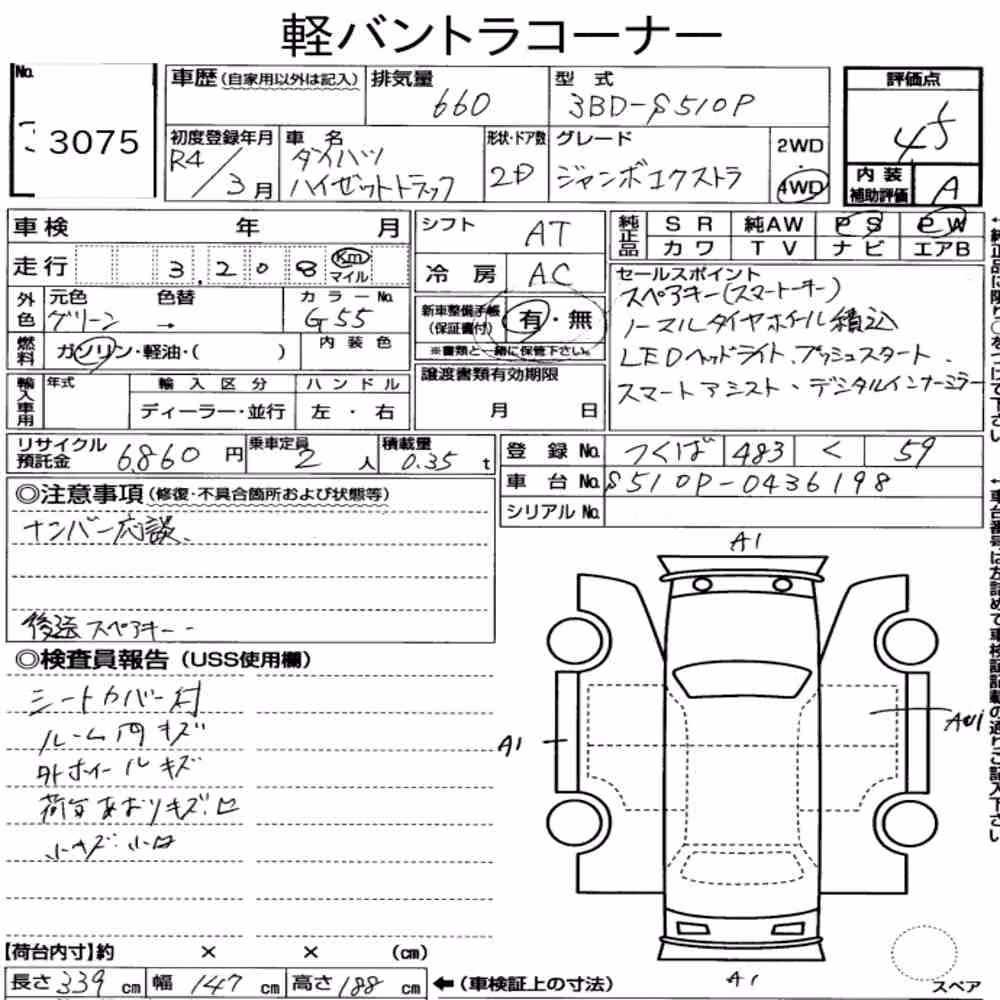 軽バントラコーナー
No. 3075
車歴(自家用以外は記入)
排気量 660
型式 3BD-S510P
評価点 4.5
初度登録年月 R4/3月
車名 ダイハツ ハイゼットトラック
形状・ドア数 2D
グレード ジャンボエクストラ
2WD・4WD
内装補助評価 A
車検 年 月
シフト AT
純正品 SR 純AW PS PW
カワ TV ナビ エアB
走行 3,208 Km マイル
冷房 AC
セールスポイント
スペアキー(スマートキー)
ノーマルタイヤホイール積込
LEDヘッドライト、プッシュスタート、
スマートアシスト、デジタルインナーミラー
外色 元色 グリーン 色替 →
カラーNo. G55
新車整備手帳(保証書付) 有・無
※書類と一緒に保管下さい。
燃料 ガソリン・軽油・( )
内装色
輸入車用 年式 輸入区分 ハンドル
ディーラー・並行 左・右
譲渡書類有効期限
月 日
リサイクル預託金 6,860円
乗車定員 2人
積載量 0.35t
登録No. つくば 483 く 59
車台No. S510P-0436198
シリアルNo.
◎注意事項(修復・不具合箇所および状態等)
ナンバー応談、
後送 スペアキー
◎検査員報告(USS使用欄)
シートカバー付
ルーム内キズ
外ホイールキズ
荷台あおりキズ、凹
小キズ、小凹
A1
A1
A1
【荷台内寸】約 × × (cm)
長さ339cm 幅147cm 高さ188cm ←(車検証上の寸法)
スペア
←純正品に限り○をつけて下さい
←車台番号は左詰めで車検証記載の通りご記入下さい